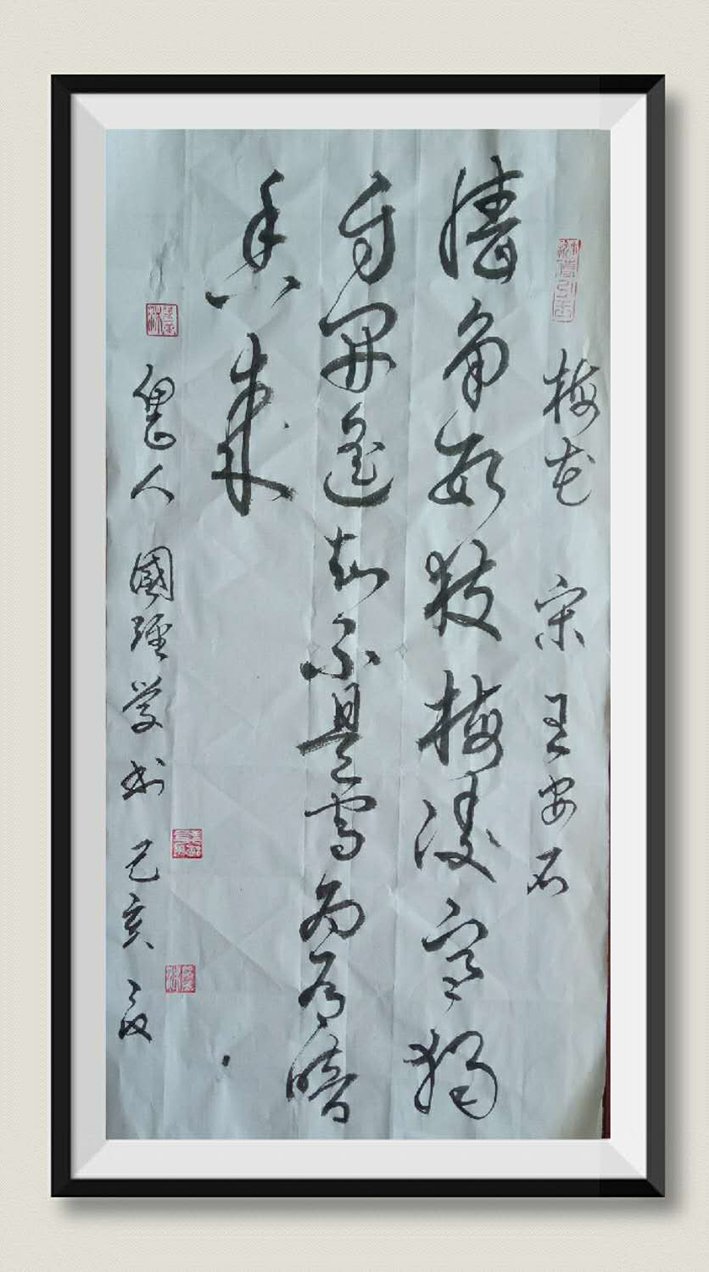 梅花 宋 王安石
墙角数枝梅凌寒獨
自开遥知不是雪为有暗
香来
人 國經学书 己亥